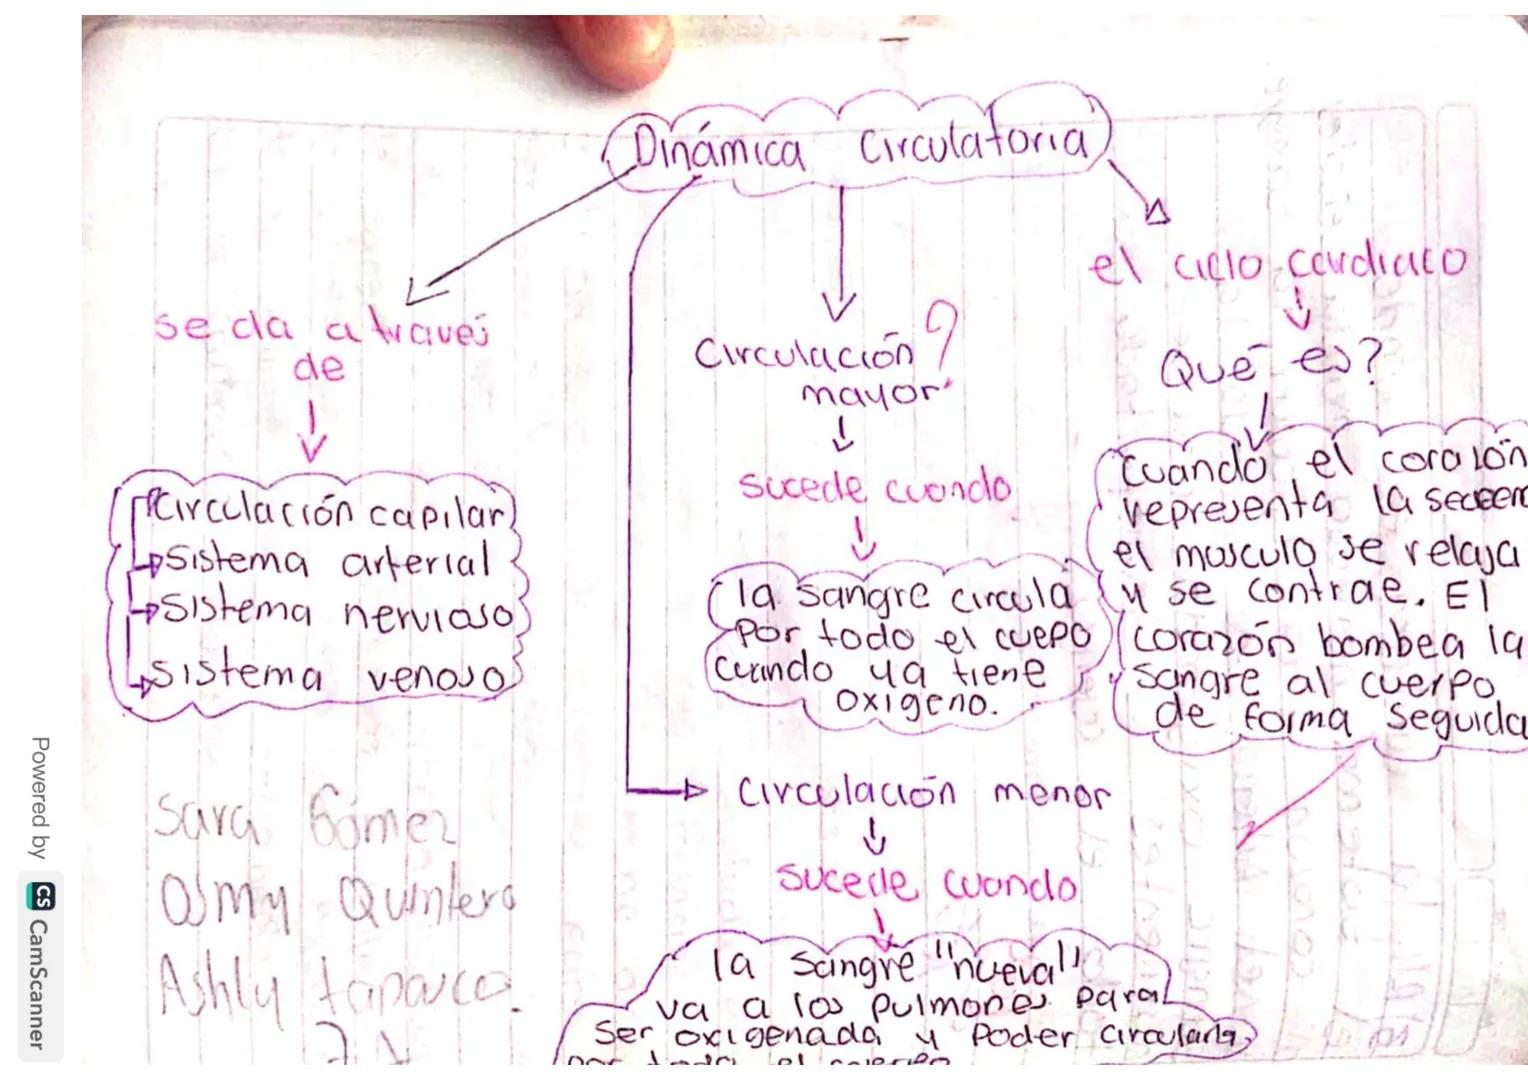 Dinámica Circulatoria
se da a través
de
Circulación capilar
Sistema arterial
Sistema nervioso
Sistema venoso
Circulación
mayor
sucede cuando
la sangre circula
por todo el cuepo
cuando ya tiene
oxigeno.
Circulación menor
sucede cuando
la sangre "nueva"
va a los pulmones para
ser oxigenada y poder circular
por todo el cuerpo
el ciclo cardiaco
Qué es?
Cuando el corazón
representa la
el musculo se relaja
y se contrae. El
corazón bombea la
sangre al cuerpo
de forma seguida
Sara Gómez
Quintero
Ashly
Powered by CS CamScanner